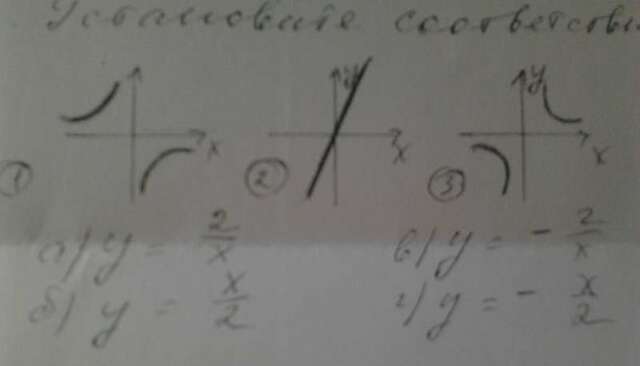 Установите соответстви
y y
x x x
1 2 3
а) y = 2/x в) y = - 2/x
б) y = x/2 г) y = - x/2